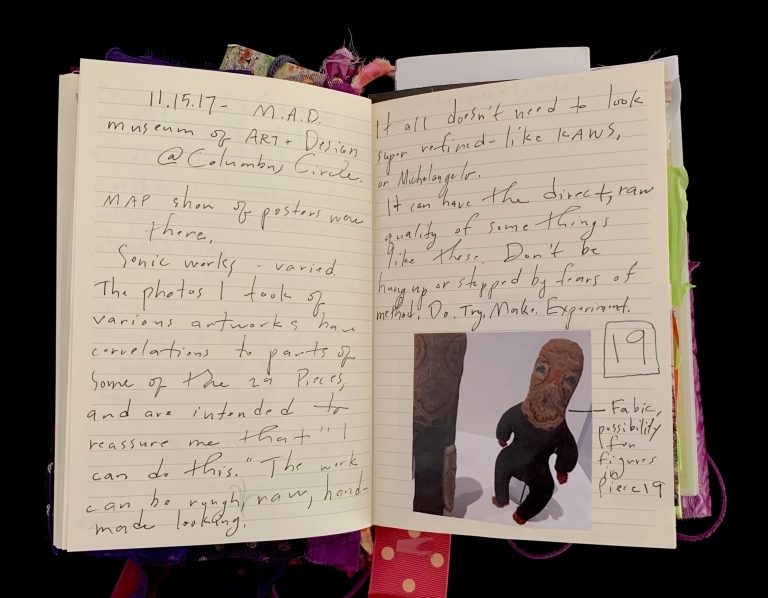 11.15.17 - M.A.D.
museum of ART + Design
@ Columbus Circle.
MAP show of posters were
there.
Sonic works - varied
The photos I took of
various artworks have
correlations to parts of
some of the 29 Pieces,
and are intended to
reassure me that "I
can do this." The work
can be rough, raw, hand-
made looking.
It all doesn't need to look
super refined - like KAWS,
or Michelangelo.
It can have the direct, raw
quality of some things
like these. Don't be
hung up or stopped by fears of
method. Do. Try. Make. Experiment.
19
Fabic,
possibility
for
figures
in
Piece 19